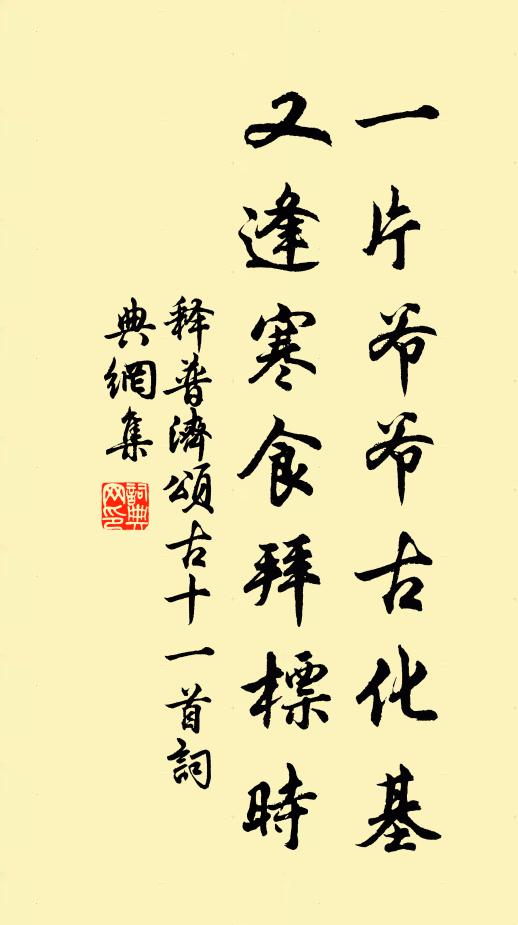 一片爷爷古化基
又逢寒食拜標時
释普濟頌古十一首詞
典網集
詞典
网印